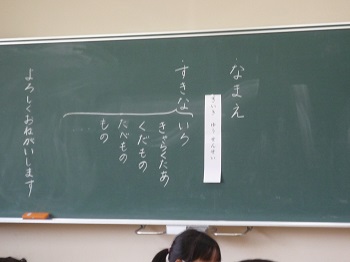 なまえ
すきないろ
きゃらくたあ
くだもの
たべもの
もの
よろしくおねがいします